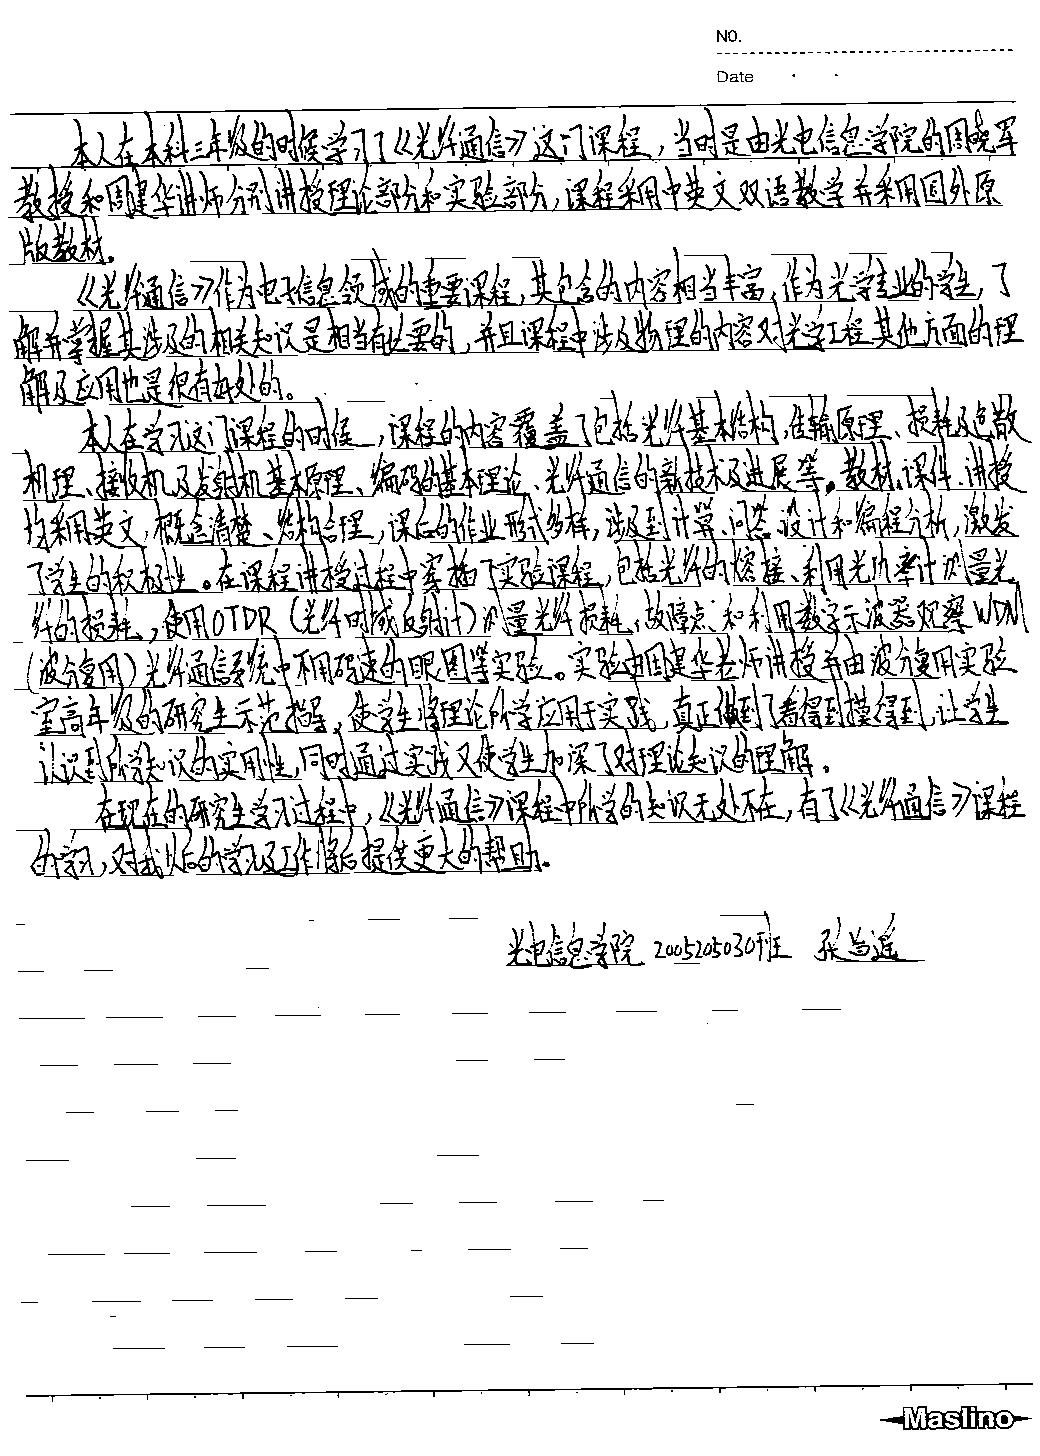 NO.
Date
本人在本科三年级的时候学习了《光纤通信》这门课程，当时是由光电信息学院的周晓军
教授和周建华讲师分别讲授理论部分和实验部分，课程采用中英文双语教学并采用国外原
版教材。
《光纤通信》作为电子信息领域的重要课程，其包含的内容相当丰富，作为光学专业的学生，了
解并掌握其涉及的相关知识是相当有必要的，并且课程中涉及物理的内容对光学工程其他方面的理
解及应用也是很有好处的。
本人在学习这门课程的时候，课程的内容覆盖了包括光纤基本结构，传输原理、损耗及色散
机理、接收机及发射机基本原理、编码的基本理论、光纤通信的新技术及进展等。教材、课件、讲授
均采用英文，概念清楚、结构合理，课后的作业形式多样，涉及到计算、问答、设计和编程分析，激发
了学生的积极性。在课程讲授过程中穿插了实验课程，包括光纤的熔接、利用光功率计测量光
纤的损耗，使用OTDR（光纤时域反射计）测量光纤损耗，故障点、和利用数字示波器观察WDM
（波分复用）光纤通信系统中不用码速的眼图等实验。实验由周建华老师讲授并由波分复用实验
室高年级的研究生示范指导，使学生将理论所学应用于实践，真正做到了看得到摸得到，让学生
认识到所学知识的实用性，同时通过实践又使学生加深了对理论知识的理解。
在现在的研究生学习过程中，《光纤通信》课程中所学的知识无处不在，有了《光纤通信》课程
的学习，对我以后的学习及工作将后提供更大的帮助。
光电信息学院 2005205030班 张尚遥
Maslino